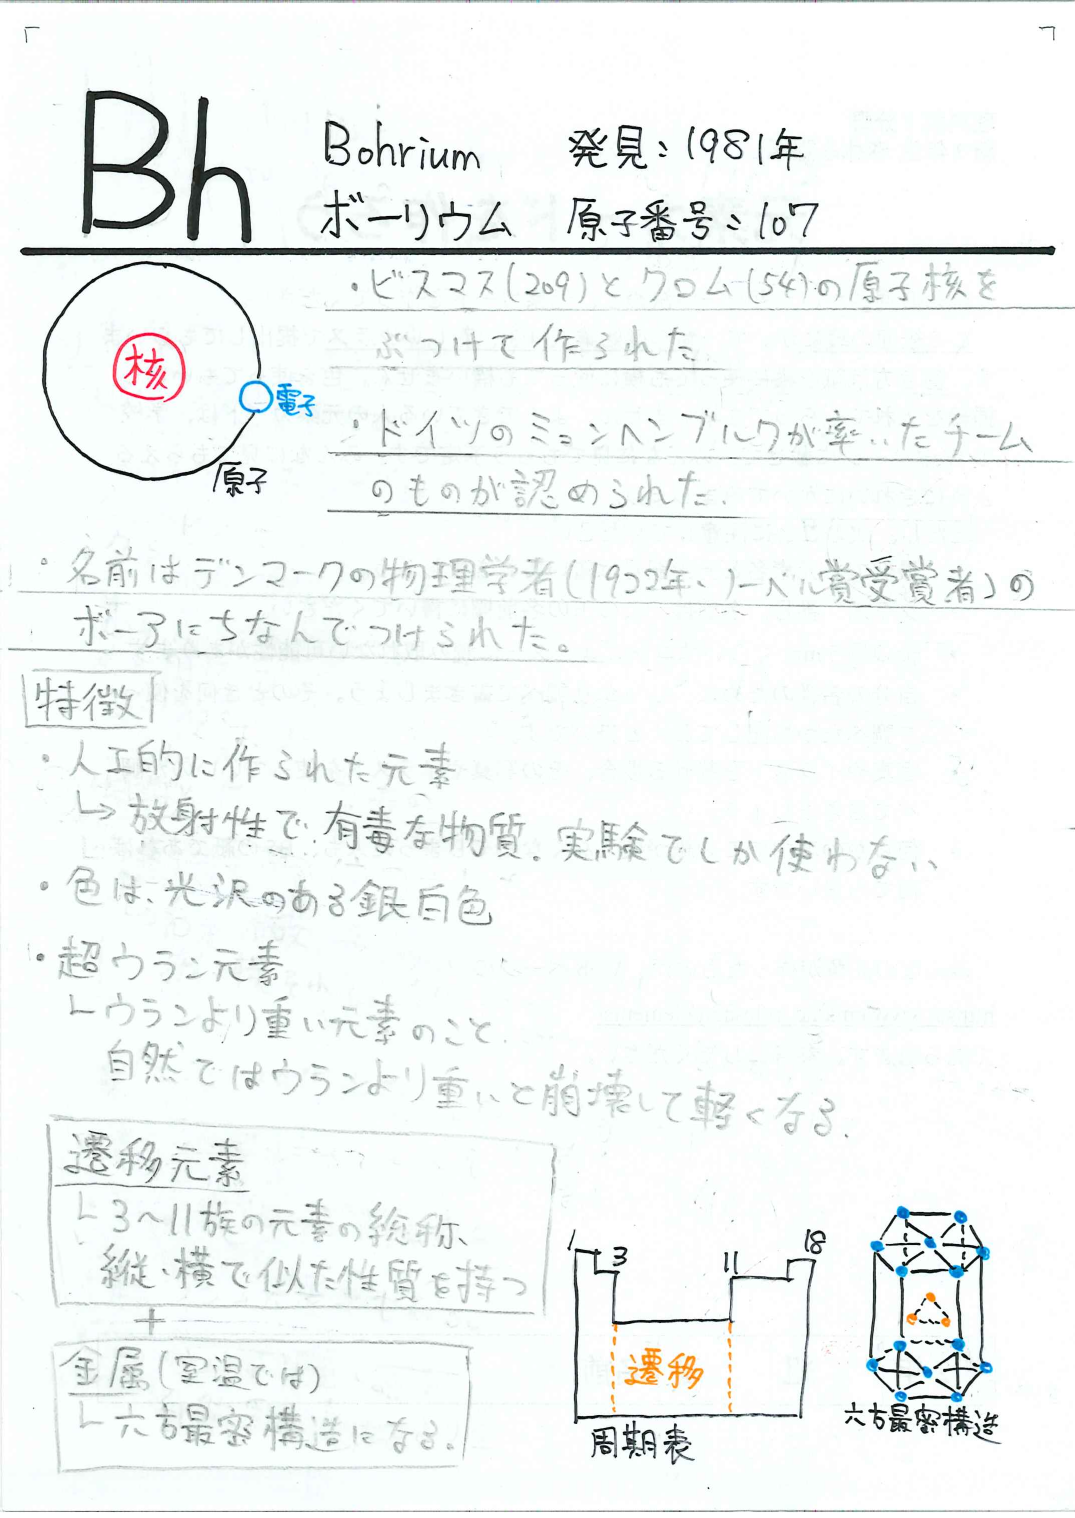 Bh
Bohrium 発見：1981年
ボーリウム 原子番号：107
核
電子
原子
・ビスマス(209)とクロム(54)の原子核を
ぶつけて作られた.
・ドイツのミュンヘンブルクが率いたチーム
のものが認められた.
・名前はデンマークの物理学者(1922年、ノーベル賞受賞者)の
ボーアにちなんでつけられた。
特徴
・人工的に作られた元素
↳放射性で、有毒な物質.実験でしか使わない
・色は、光沢のある銀白色
・超ウラン元素
└ウランより重い元素のこと.
自然ではウランより重いと崩壊して軽くなる.
遷移元素
└3〜11族の元素の総称、
縦・横で似た性質を持つ
+
金属(室温では)
└六方最密構造になる.
1 3 11 18
遷移
周期表
六方最密構造